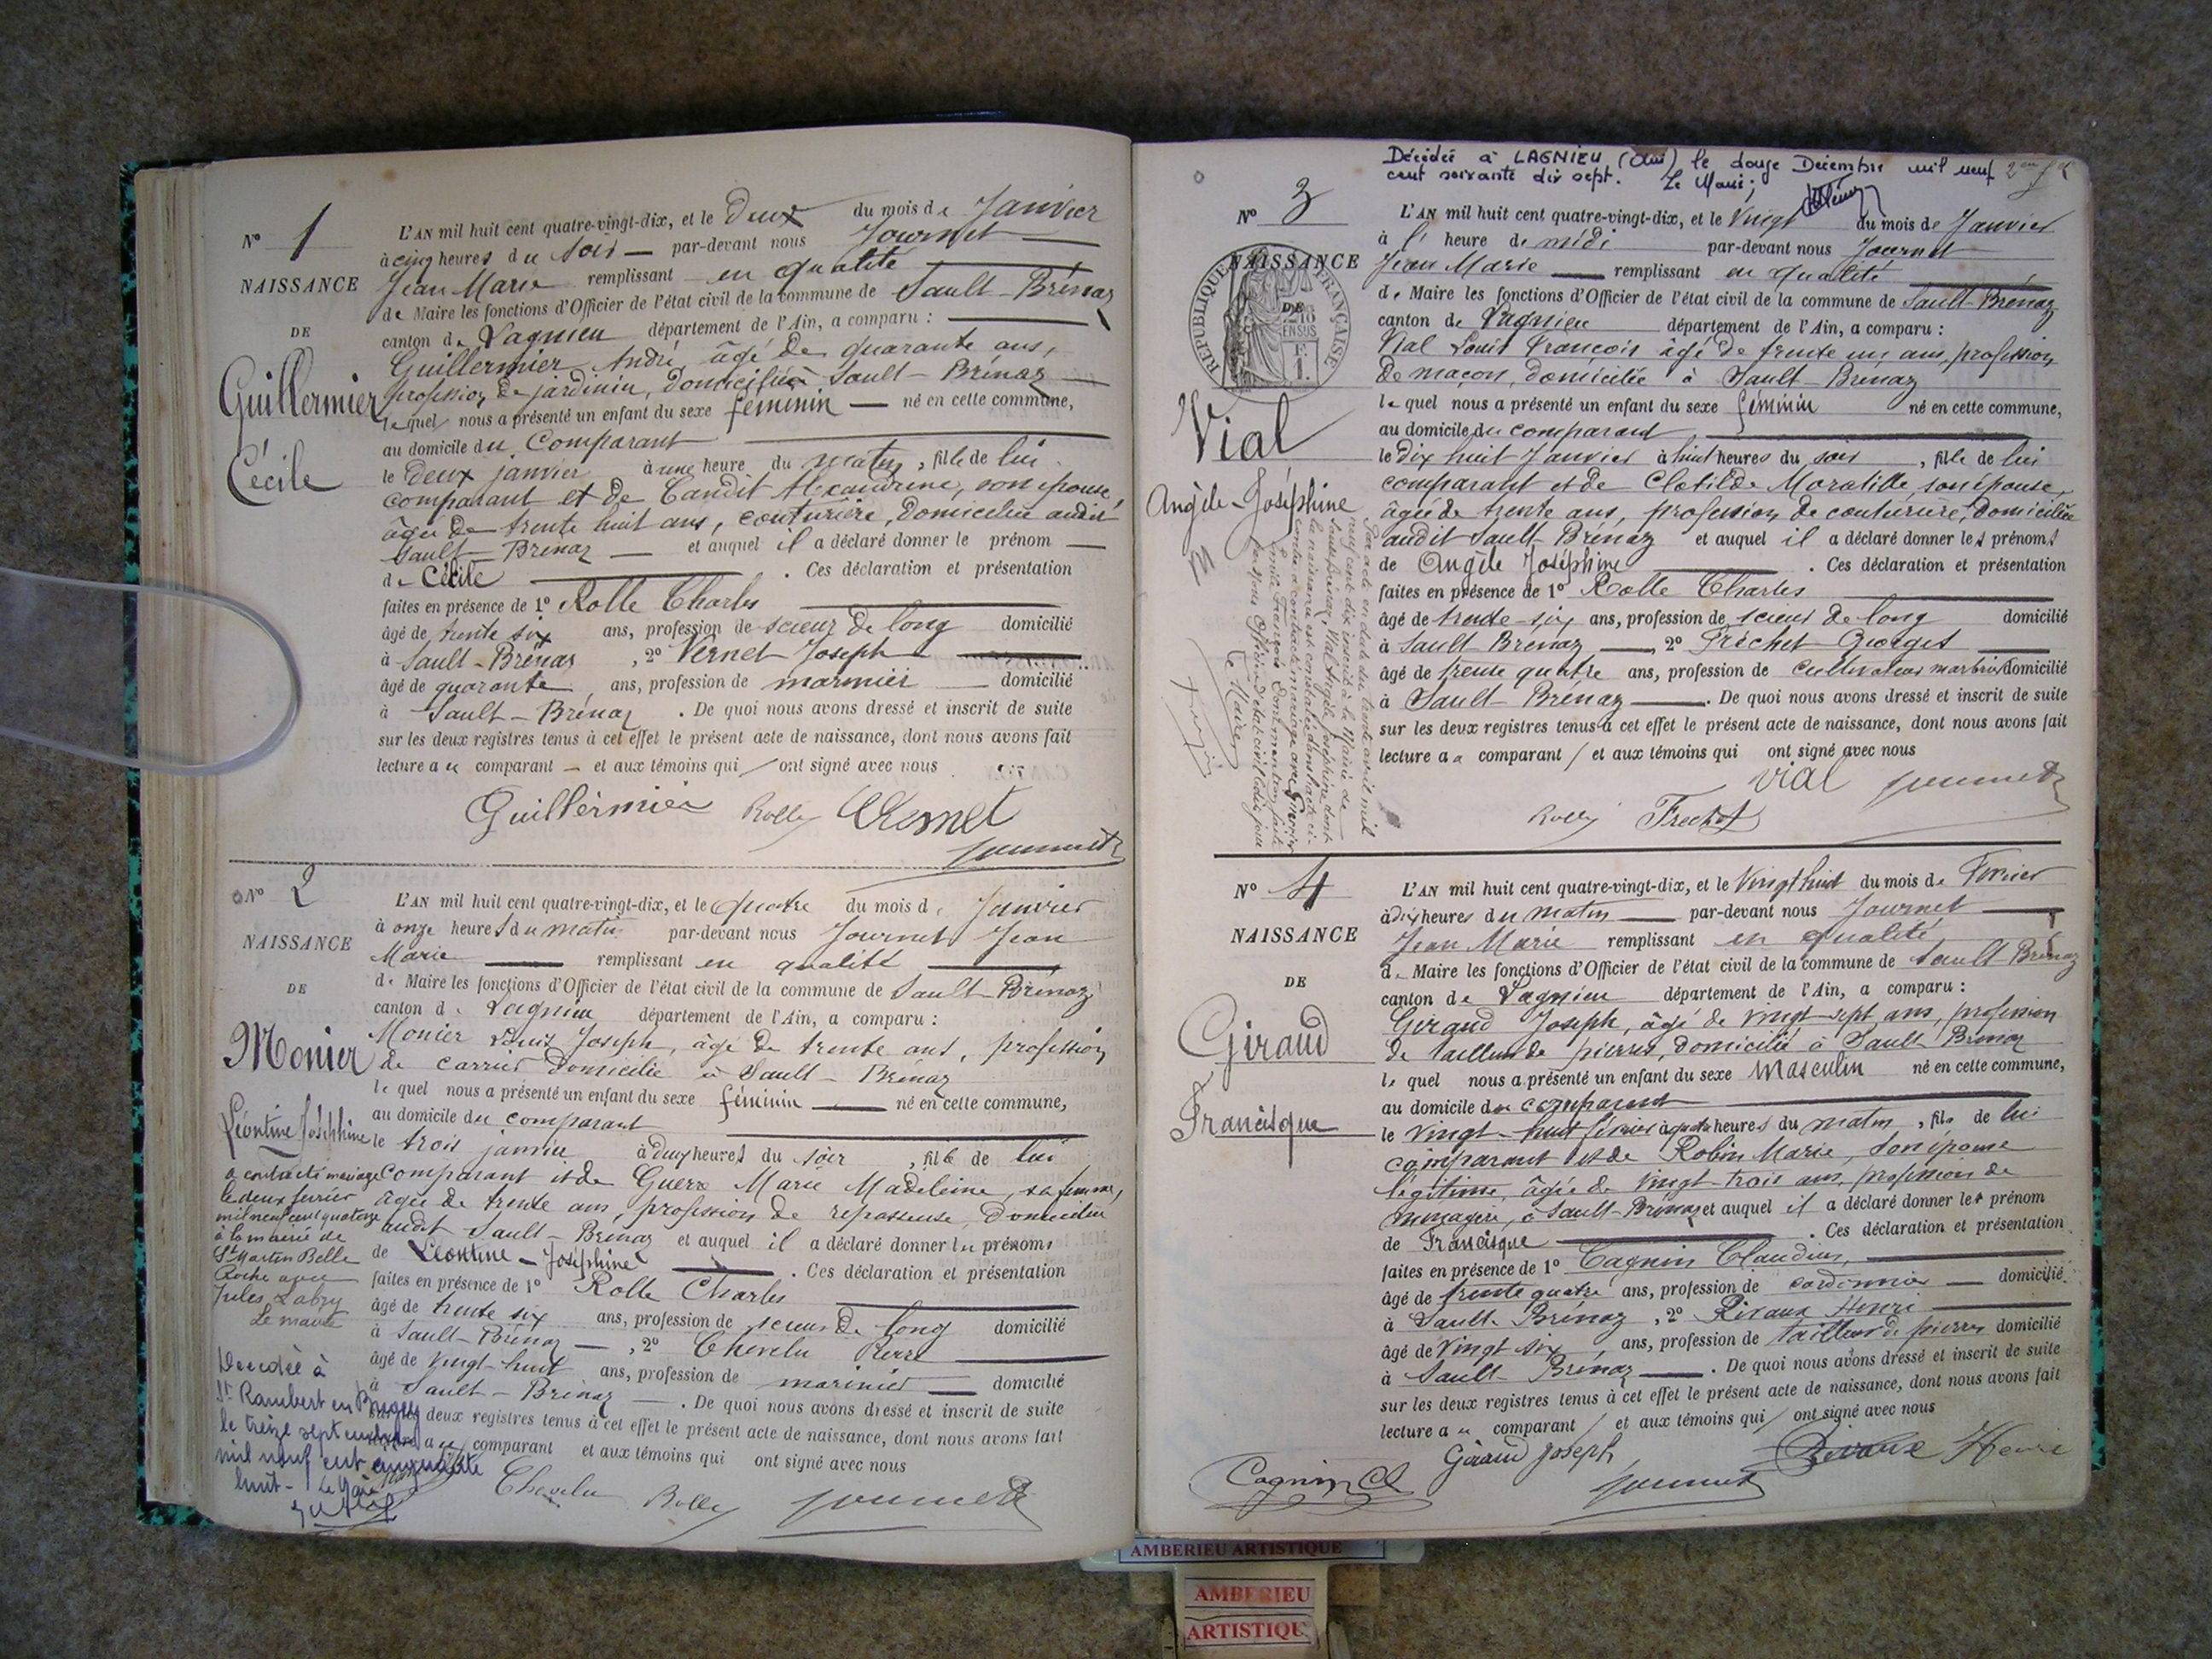 N° 1
NAISSANCE
DE
Guillermier
Cécile
L'AN mil huit cent quatre-vingt-dix, et le Deux du mois de Janvier
à cinq heures du soir — par-devant nous Journet
Jean Marie remplissant en qualité
de Maire les fonctions d'Officier de l'état civil de la commune de Sault-Brénaz
canton de Lagnieu département de l'Ain, a comparu :
Guillermier André âgé de quarante ans,
profession de jardinier, domicilié à Sault-Brénaz
lequel nous a présenté un enfant du sexe féminin — né en cette commune,
au domicile du Comparant
le deux janvier à une heure du matin, fille de lui
comparant et de Candit Alexandrine, son épouse,
âgée de trente huit ans, couturière, domiciliée audit
Sault-Brénaz — et auquel il a déclaré donner le prénom
de Cécile . Ces déclaration et présentation
faites en présence de 1° Rolle Charles
âgé de trente six ans, profession de scieur de long domicilié
à Sault-Brénaz , 2° Vernet Joseph
âgé de quarante ans, profession de marinier domicilié
à Sault-Brénaz . De quoi nous avons dressé et inscrit de suite
sur les deux registres tenus à cet effet le présent acte de naissance, dont nous avons fait
lecture au comparant — et aux témoins qui ont signé avec nous
Guillermier Rolle Vernet
Journet
N° 2
NAISSANCE
DE
Monier
Léontine Joséphine
a contracté mariage
le deux février
mil neuf cent quatorze
à la mairie de
St Martin Belle
Roche avec
Jules Labry
Le maire
Décédée à
St Rambert en Bugey
le treize septembre
mil neuf cent cinquante
huit - Le Maire
L'AN mil huit cent quatre-vingt-dix, et le Quatre du mois de Janvier
à onze heures du matin par-devant nous Journet Jean
Marie remplissant en qualité
de Maire les fonctions d'Officier de l'état civil de la commune de Sault-Brénaz
canton de Lagnieu département de l'Ain, a comparu :
Monier Louis Joseph, âgé de trente ans, profession
de carrier domicilié à Sault-Brénaz
lequel nous a présenté un enfant du sexe féminin — né en cette commune,
au domicile du comparant
le trois janvier à deux heures du soir, fille de lui
comparant et de Guerx Marie Madeleine, sa femme,
âgée de trente ans, profession de repasseuse, domiciliée
audit Sault-Brénaz et auquel il a déclaré donner les prénoms
de Léontine-Joséphine . Ces déclaration et présentation
faites en présence de 1° Rolle Charles
âgé de trente six ans, profession de scieur de long domicilié
à Sault-Brénaz — , 2° Chevelu Pierre
âgé de vingt-huit ans, profession de marinier — domicilié
à Sault-Brénaz — . De quoi nous avons dressé et inscrit de suite
sur les deux registres tenus à cet effet le présent acte de naissance, dont nous avons fait
lecture au comparant et aux témoins qui ont signé avec nous
Chevelu Rolle Journet
Décédée à LAGNIEU (Ain) le douze Décembre mil neuf
cent soixante dix sept. Le Maire;
N° 3
NAISSANCE
DE
RÉPUBLIQUE FRANÇAISE
Vial
Angèle-Joséphine
Par acte en date du trente avril mil
neuf cent dix inscrit à la Mairie de
Sault-Brénaz, Vial Angèle Joséphine dont
la naissance est constatée dans l'acte ci-
contre a contracté mariage avec Guerrier
François dont mention faite
par nous Officier de l'état civil cedit jour
Le Maire
L'AN mil huit cent quatre-vingt-dix, et le Vingt du mois de Janvier
à l' heure de midi par-devant nous Journet
Jean Marie — remplissant en qualité
de Maire les fonctions d'Officier de l'état civil de la commune de Sault-Brénaz
canton de Lagnieu département de l'Ain, a comparu :
Vial Louis François âgé de trente un ans, profession
de maçon, domicilié à Sault-Brénaz
lequel nous a présenté un enfant du sexe féminin né en cette commune,
au domicile du comparant
le dix huit Janvier à huit heures du soir , fille de lui
comparant et de Clotilde Moratille, son épouse,
âgée de trente ans, profession de couturière, domiciliée
audit Sault-Brénaz et auquel il a déclaré donner les prénoms
de Angèle Joséphine . Ces déclaration et présentation
faites en présence de 1° Rolle Charles
âgé de trente-six ans, profession de scieur de long domicilié
à Sault-Brénaz — , 2° Fréchet Georges
âgé de trente quatre ans, profession de cultivateur marbrier domicilié
à Sault-Brénaz — . De quoi nous avons dressé et inscrit de suite
sur les deux registres tenus à cet effet le présent acte de naissance, dont nous avons fait
lecture au comparant / et aux témoins qui ont signé avec nous
Vial Journet
Rolle Frechet
N° 4
NAISSANCE
DE
Giraud
Francisque
L'AN mil huit cent quatre-vingt-dix, et le Vingt huit du mois de Février
à dix heures du matin — par-devant nous Journet
Jean Marie remplissant en qualité
de Maire les fonctions d'Officier de l'état civil de la commune de Sault-Brénaz
canton de Lagnieu département de l'Ain, a comparu :
Giraud Joseph, âgé de vingt-sept ans, profession
de tailleur de pierres, domicilié à Sault-Brénaz
lequel nous a présenté un enfant du sexe masculin né en cette commune,
au domicile du comparant
le vingt-huit février à quatre heures du matin , fils de lui
comparant et de Robin Marie, son épouse
légitime, âgée de vingt-trois ans, profession de
ménagère, à Sault-Brénaz et auquel il a déclaré donner le prénom
de Francisque . Ces déclaration et présentation
faites en présence de 1° Cagnin Claudius,
âgé de trente quatre ans, profession de cordonnier — domicilié
à Sault-Brénaz , 2° Rivaux Henri
âgé de vingt six ans, profession de tailleur de pierres domicilié
à Sault-Brénaz — . De quoi nous avons dressé et inscrit de suite
sur les deux registres tenus à cet effet le présent acte de naissance, dont nous avons fait
lecture au comparant / et aux témoins qui / ont signé avec nous
Giraud Joseph Rivaux Henri
Cagnin Cl Journet
AMBERIEU ARTISTIQUE
AMBERIEU
ARTISTIQU